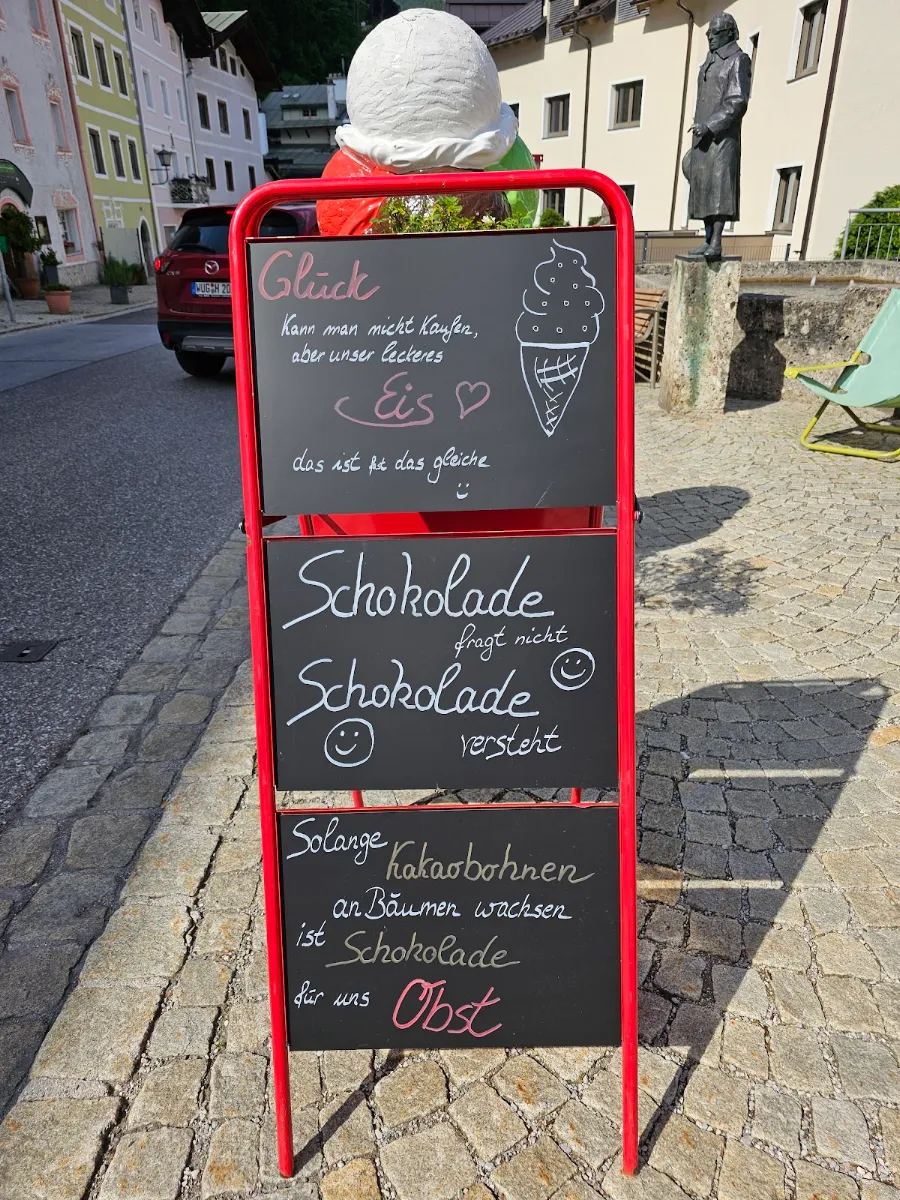 Glück
Kann man nicht Kaufen,
aber unser leckeres
Eis
das ist fast das gleiche
Schokolade
fragt nicht
Schokolade
versteht
Solange
Kakaobohnen
an Bäumen wachsen
ist
Schokolade
für uns
Obst